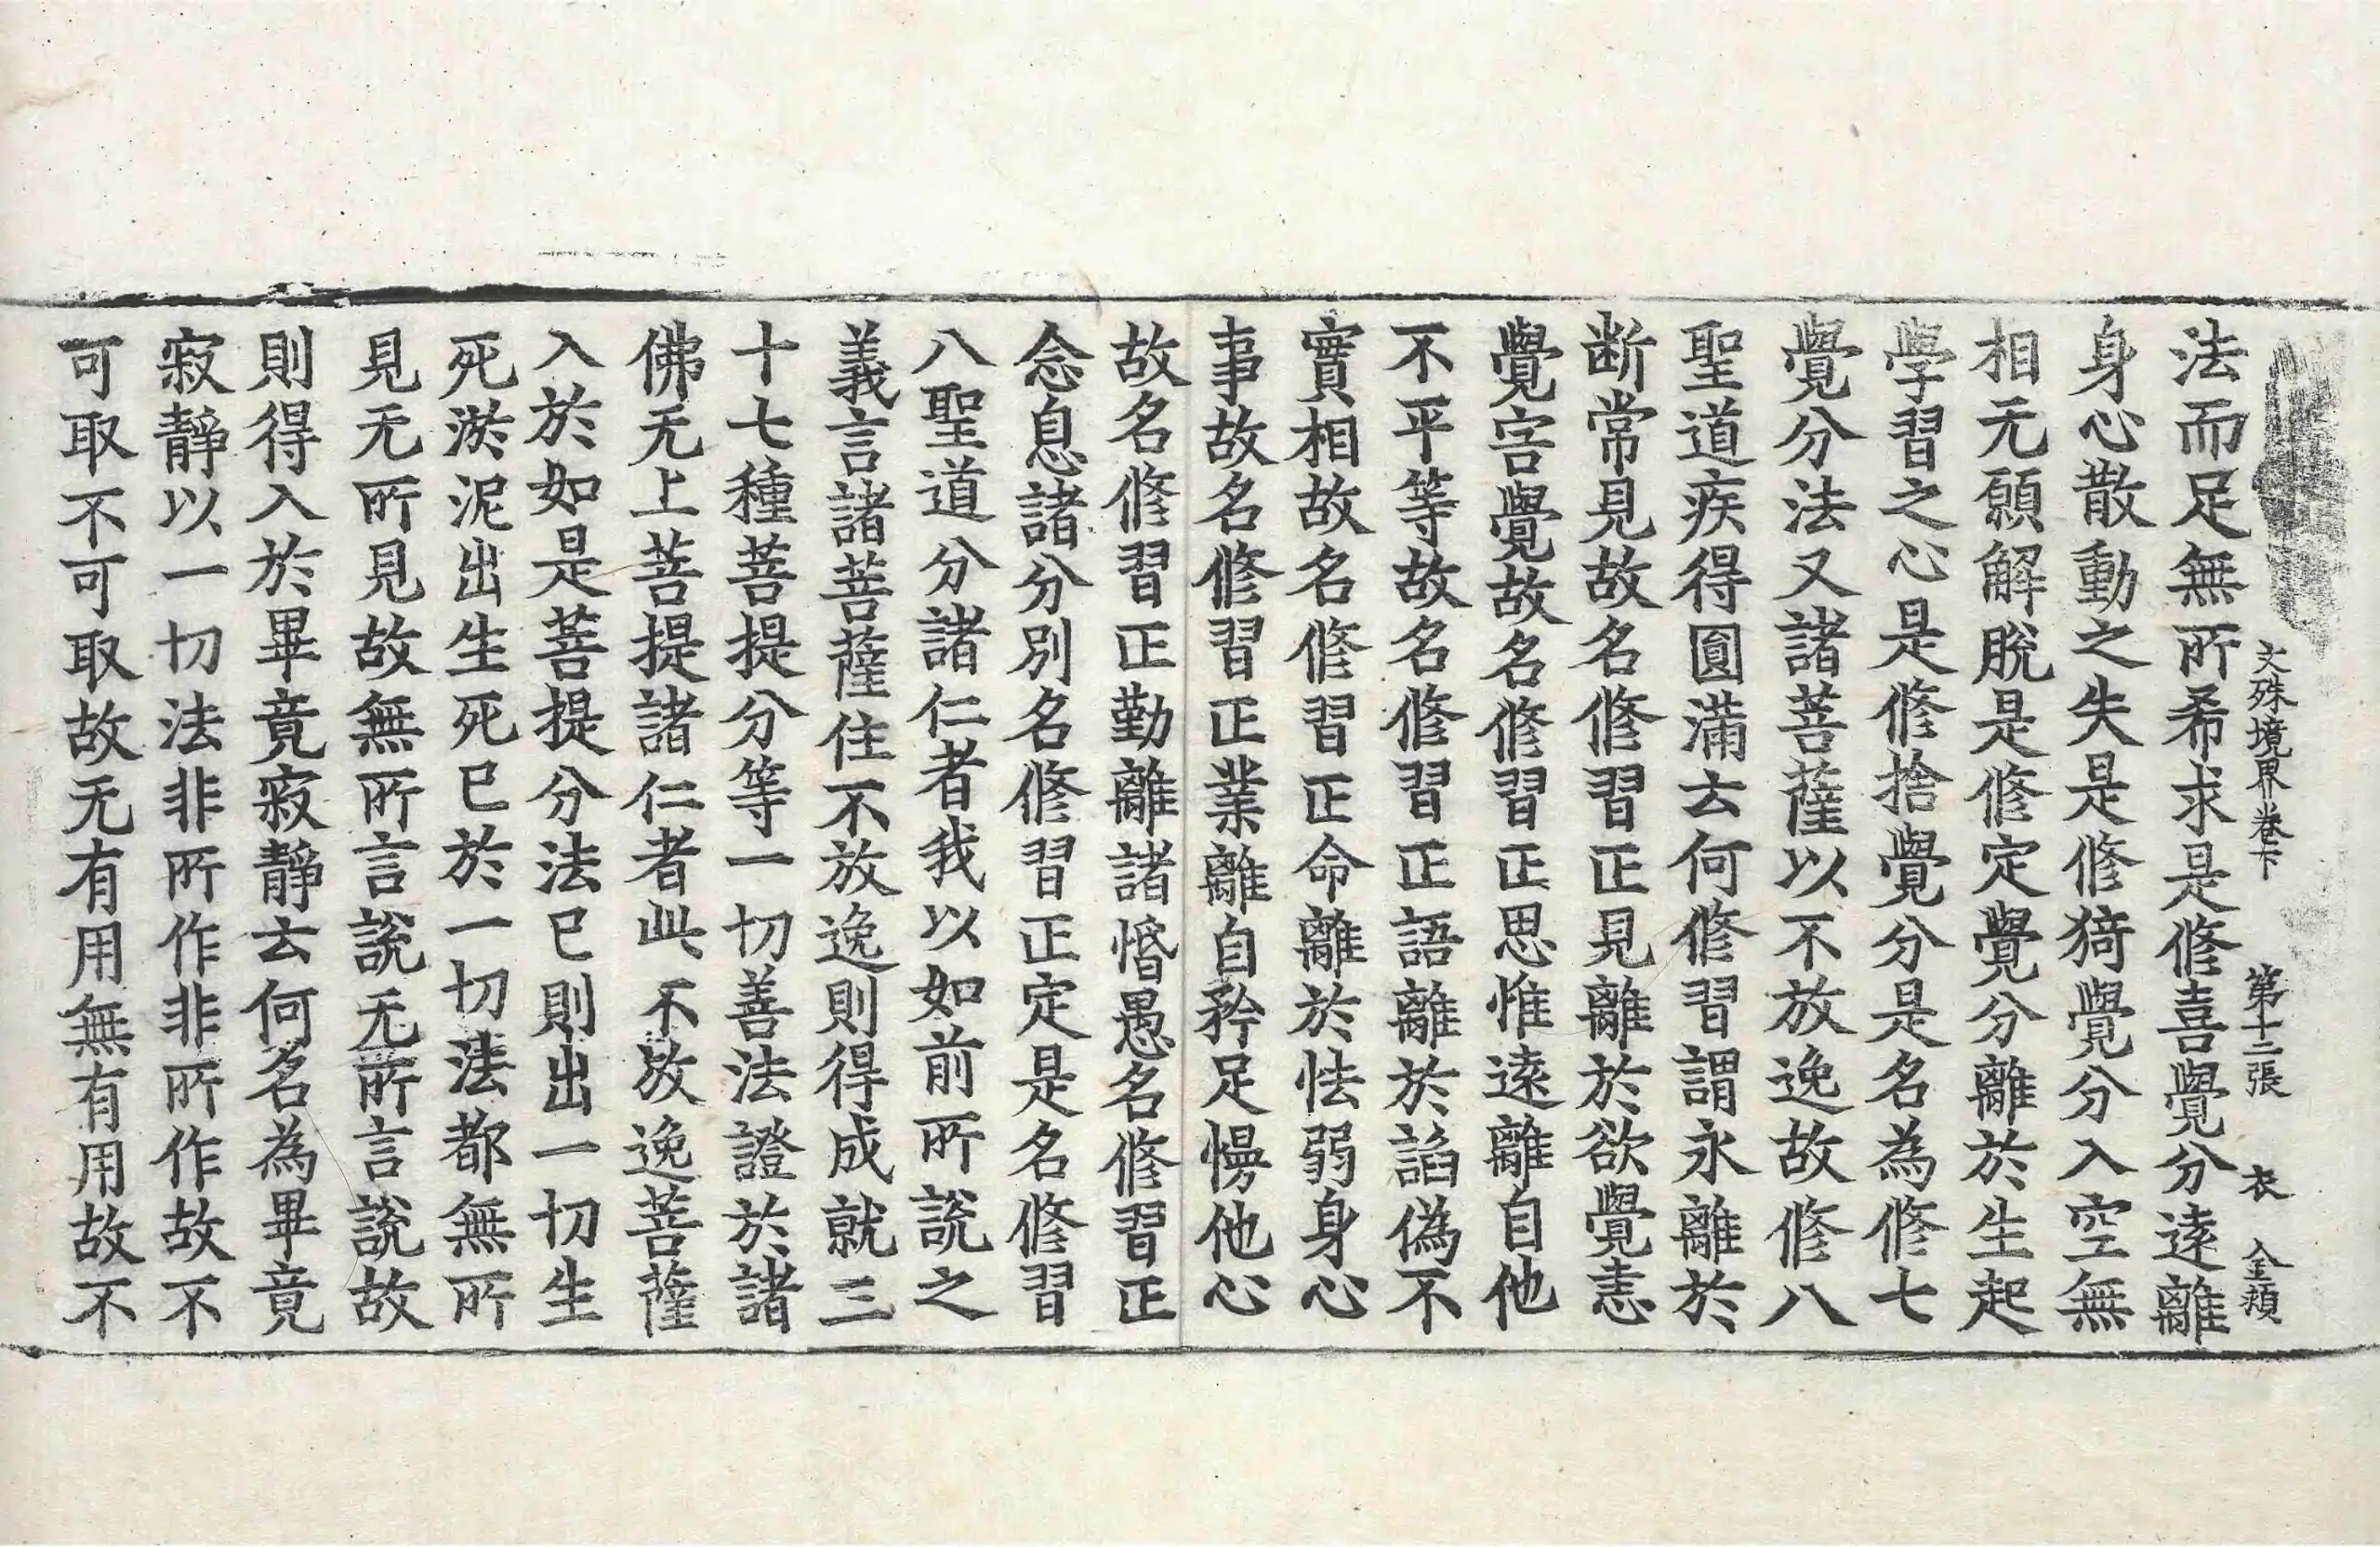 文殊境界卷下 第十二張 衣 全賴
法而足無所希求是修喜覺分遠離
身心散動之失是修猗覺分入空無
相无願解脫是修定覺分離於生起
學習之心是修捨覺分是名為修七
覺分法又諸菩薩以不放逸故修八
聖道疾得圓滿去何修習謂永離於
断常見故名修習正見離於欲覺恚
覺害覺故名修習正思惟遠離自他
不平等故名修習正語離於諂偽不
實相故名修習正命離於怯弱身心
事故名修習正業離自矜足慢他心
故名修習正勤離諸惛愚名修習正
念息諸分別名修習正定是名修習
八聖道分諸仁者我以如前所說之
義言諸菩薩住不放逸則得成就三
十七種菩提分等一切善法證於諸
佛无上菩提諸仁者此不放逸菩薩
入於如是菩提分法已則出一切生
死淤泥出生死已於一切法都無所
見无所見故無所言說无所言說故
則得入於畢竟寂靜去何名為畢竟
寂靜以一切法非所作非所作故不
可取不可取故无有用無有用故不